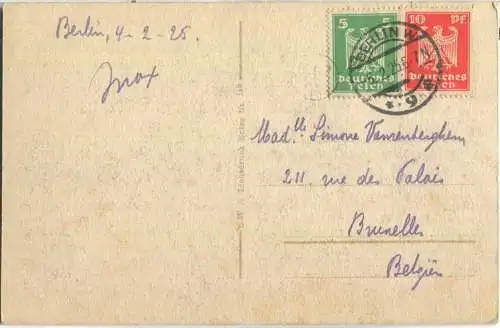 Berlin, 4-2-25.
Max
5 5
Deutsches
Reich
10 Pf
Deutsches
Reich
BERLIN W
* 9
Mad.lle Simone Vanzenberghen
211, rue des Palais
Bruxelles
Belgien